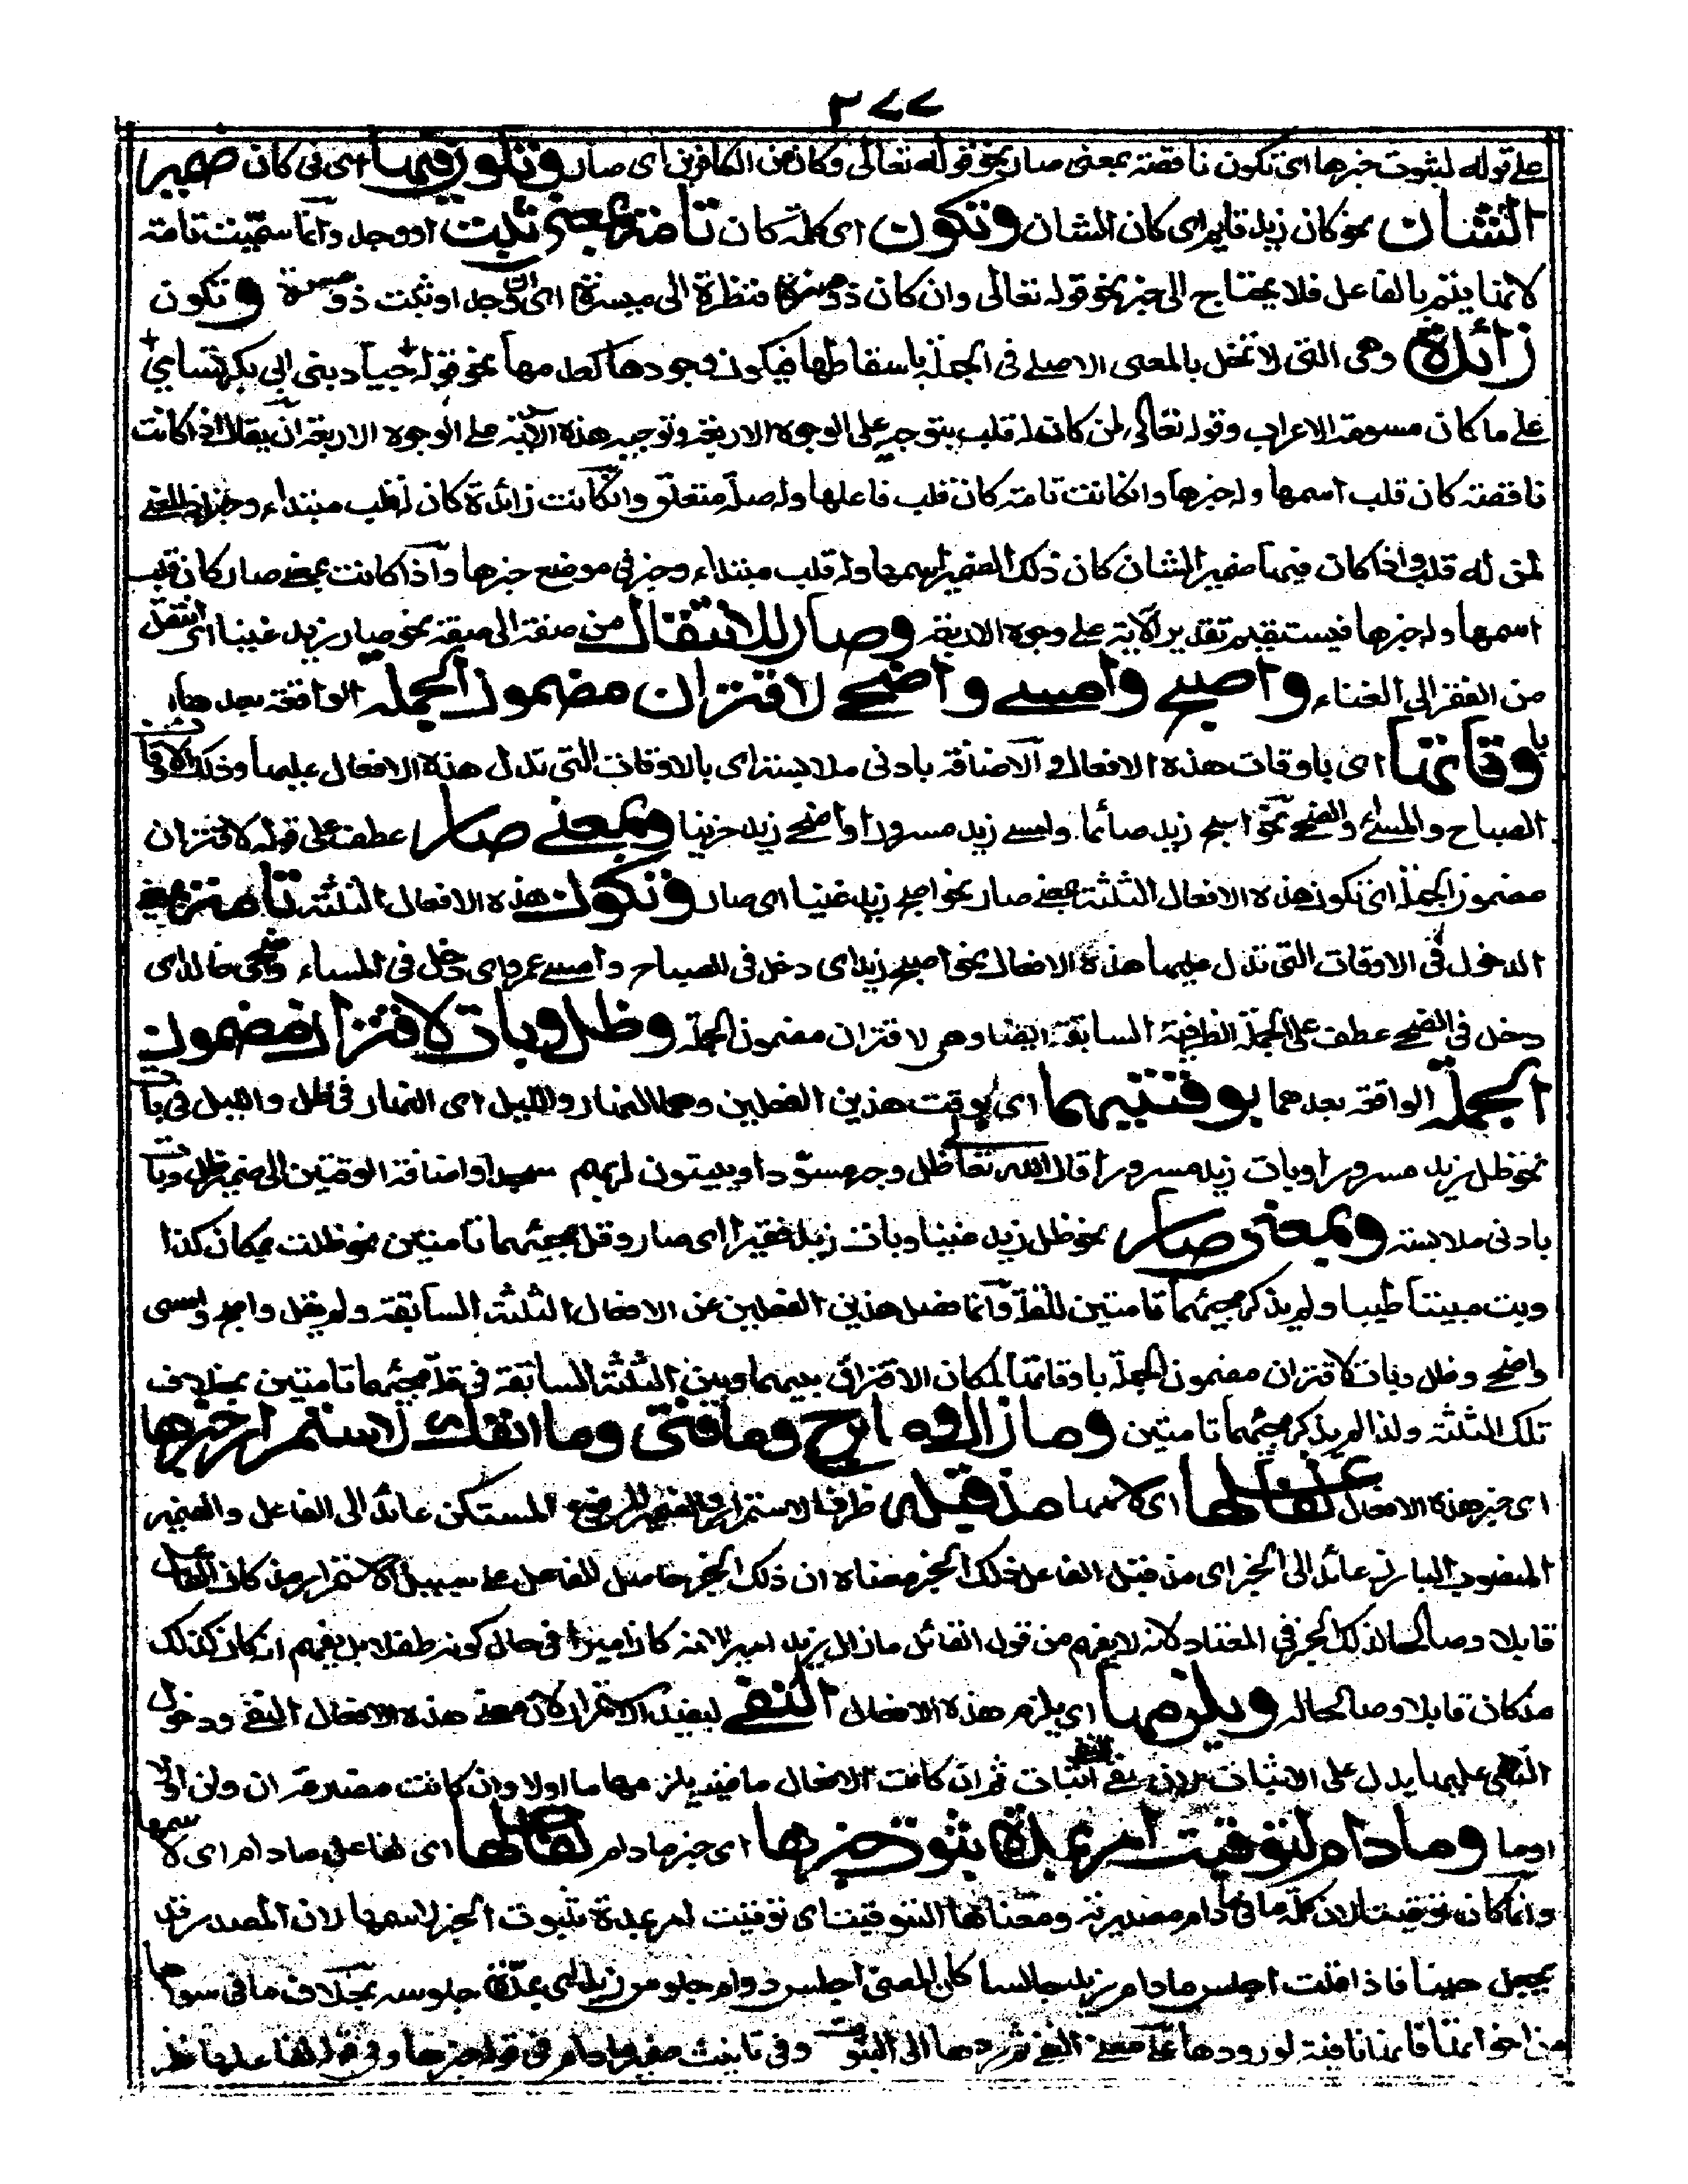 ٢٧٧
على قوله لثبوت خبرها اى تكون ناقصة بمعنى صار نحو قوله تعالى وكان من الكافرين اى صار وتكون فيها اى فى كان ضمير
الشان نحو كان زيد قايم اى كان الشان وتكون اى كلمة كان تامة بمعنى ثبت او وجد وانما سميت تامة
لانها يتم بالفاعل فلا يحتاج الى خبر نحو قوله تعالى وان كان ذو عسرة فنظرة الى ميسرة اى ان وجد او ثبت ذو عسرة وتكون
زائدة وهى التى لا تخل بالمعنى الاصلى فى الجملة باسقاطها فيكون وجودها كعدمها نحو قوله جياد بنى ابى بكر تسامى
على ما كان مسومة الاعراب وقوله تعالى لمن كان له قلب يتوجه على الوجوه الاربعة وتوجيه هذه الآية على الوجوه الاربعة ان يقال اذا كانت
ناقصة كان قلب اسمها وله خبرها وان كانت تامة كان قلب فاعلها وله صلة متعلق وان كانت زائدة كان قلب مبتداء وخبره له المعنى
لمن له قلب واذا كان فيها ضمير الشان كان ذلك الضمير اسمها وله قلب مبتداء وخبر فى موضع خبرها واذا كانت بمعنى صار كان قلب
اسمها وله خبرها فيستقيم تقدير الآية على وجوه الاربعة وصار للانتقال من صفة الى صفة نحو صار زيد غنيا اى انتقل
من الفقر الى الغناء واصبح وامسى واضحى لاقتران مضمون الجملة الواقعة بعدها
باوقاتها اى باوقات هذه الافعال والاضافة بادنى ملابسة اى بالاوقات التى تدل هذه الافعال عليها وذلك الاوقات
الصباح والمساء والضحى نحو اصبح زيد صائما وامسى زيد مسرورا واضحى زيد حزينا وبمعنى صار عطف على قوله لاقتران
مضمون الجملة اى تكون هذه الافعال الثلثة بمعنى صار نحو اصبح زيد غنيا اى صار وتكون هذه الافعال الثلثة تامة بمعنى
الدخول فى الاوقات التى تدل عليها هذه الافعال نحو اصبح زيد اى دخل فى الصباح وامسى عمرو اى دخل فى المساء وضحى خالد اى
دخل فى الضحى عطف على الجملة الظرفية السابقة ايضا وهو لاقتران مضمون الجملة وظل وبات لاقتران مضمون
الجملة الواقعة بعدهما بوقتيهما اى بوقت هذين الفعلين وهما النهار والليل اى النهار فى ظل والليل فى بات
نحو ظل زيد مسرورا وبات زيد مسرورا قال الله تعالى ظل وجهه مسودا ويبيتون لربهم سجدا واضافة الوقتين الى ضمير ظل وبات
بادنى ملابسة وبمعنى صار نحو ظل زيد غنيا وبات زيد فقيرا اى صار وقد مجيئهما تامتين نحو ظلت بمكان كذا
وبت مبيتا طيبا ولم يذكر مجيئهما تامتين للقلة وانما فصل هذين الفعلين عن الافعال الثلثة السابقة ولم يقل واصبح وامسى
واضحى وظل وبات لاقتران مضمون الجملة باوقاتها لمكان الافتراق بينهما وبين الثلثة السابقة فى قلة مجيئهما تامتين بخلاف
تلك الثلثة ولذا لم يذكر مجيئهما تامتين وما زال وما برح وما فتئ وما انفك لاستمرار خبرها
اى خبر هذه الافعال لفاعلها اى لاسمها مذ قبله ظرف الاستمرار والضمير المرفوع المستكن عائد الى الفاعل والضمير
المنصوب البارز عائد الى الخبر اى من قبل الفاعل ذلك الخبر معناه ان ذلك الخبر حاصل للفاعل على سبيل الاستمرار مذ كان الفاعل
قابلا وصالحا لذلك الخبر فى المعتاد لانه لا يفهم من قول القائل ما زال زيد اميرا انه كان اميرا فى حال كونه طفلا بل يفهم انه كان كذلك
مذ كان قابلا وصالحا له ويلزمها اى يلزم هذه الافعال النفى ليفيد الاستمرار لان معنى هذه الافعال النفى ودخول
النفى عليها يدل على الاثبات لان نفى النفى اثبات ثم ان كانت الافعال ماضية يلزمها ما اولا وان كانت مضارعة ان ولن او لا
او ما وما دام لتوقيت امر بمدة ثبوت خبرها اى خبر ما دام لفاعلها اى لفاعل ما دام اى لاسمها
وانما كان توقيتا لان كلمة ما فى ما دام مصدرية ومعناها التوقيت اى توقيت امر بمدة ثبوت الخبر لاسمها لان المصدر قد
يجعل حينا فاذا قلت اجلس ما دام زيد جالسا كان المعنى اجلس دوام جلوس زيد اى بمدة جلوسه بخلاف ما فى سواها
من اخواتها فانها نافية لورودها على معنى النفى ثم ردها الى الثبوت وفى تانيث ضمير ما دام فى قوله خبرها وفى قوله لفاعلها نظر